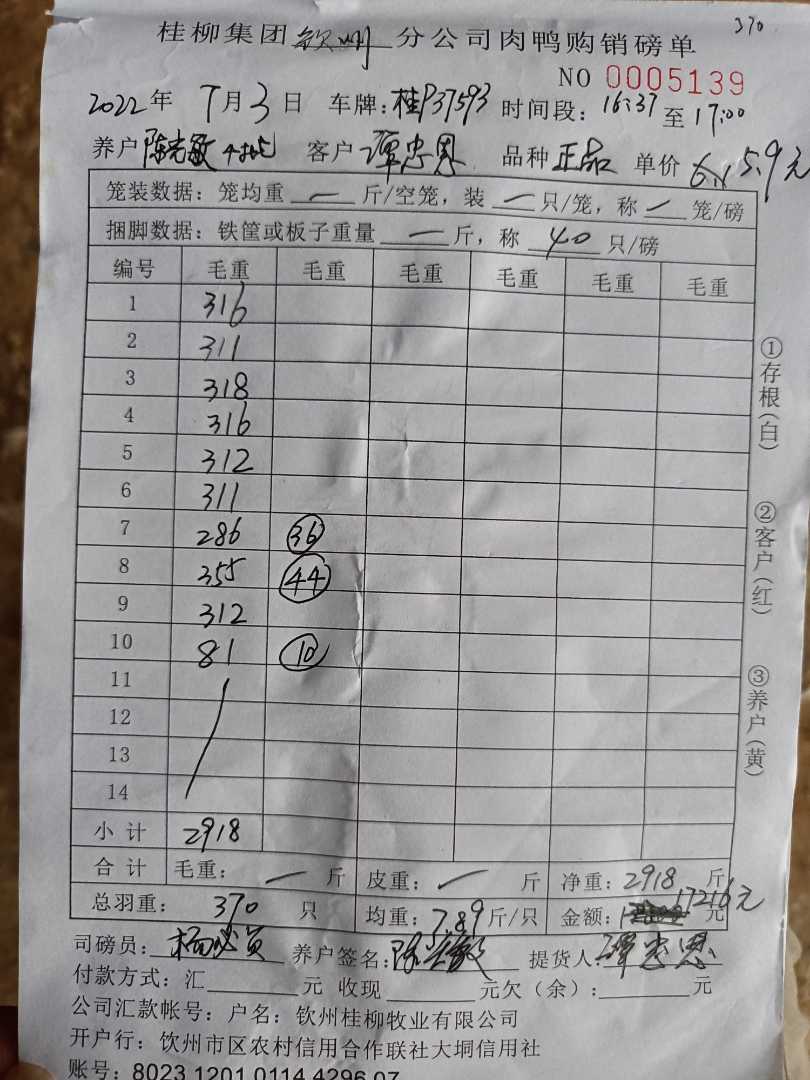 370
桂柳集团钦州分公司肉鸭购销磅单
NO 0005139
2022年 7月3日 车牌:桂P37593 时间段:16:37至17:00
养户 陈 敏 客户 谭忠恩 品种 正品 单价 5.9元
笼装数据:笼均重 一 斤/空笼,装 一 只/笼,称 一 笼/磅
捆脚数据:铁筐或板子重量 一 斤,称 40 只/磅
编号 毛重 毛重 毛重 毛重 毛重 毛重
1 316
2 311
3 318
4 316
5 312
6 311
7 286 36
8 355 44
9 312
10 81 10
11
12
13
14
小计 2918
合计 毛重: 一 斤 皮重: 一 斤 净重:2918 斤
总羽重: 370 只 均重:7.89斤/只 金额: 17216元 元
司磅员: 养户签名:陈 敏 提货人:谭忠恩
付款方式:汇 元 收现 元欠(余): 元
公司汇款帐号:户名:钦州桂柳牧业有限公司
开户行:钦州市区农村信用合作联社大垌信用社
账号:8023 1201 0114 4296 07
①存根(白)
②客户(红)
③养户(黄)